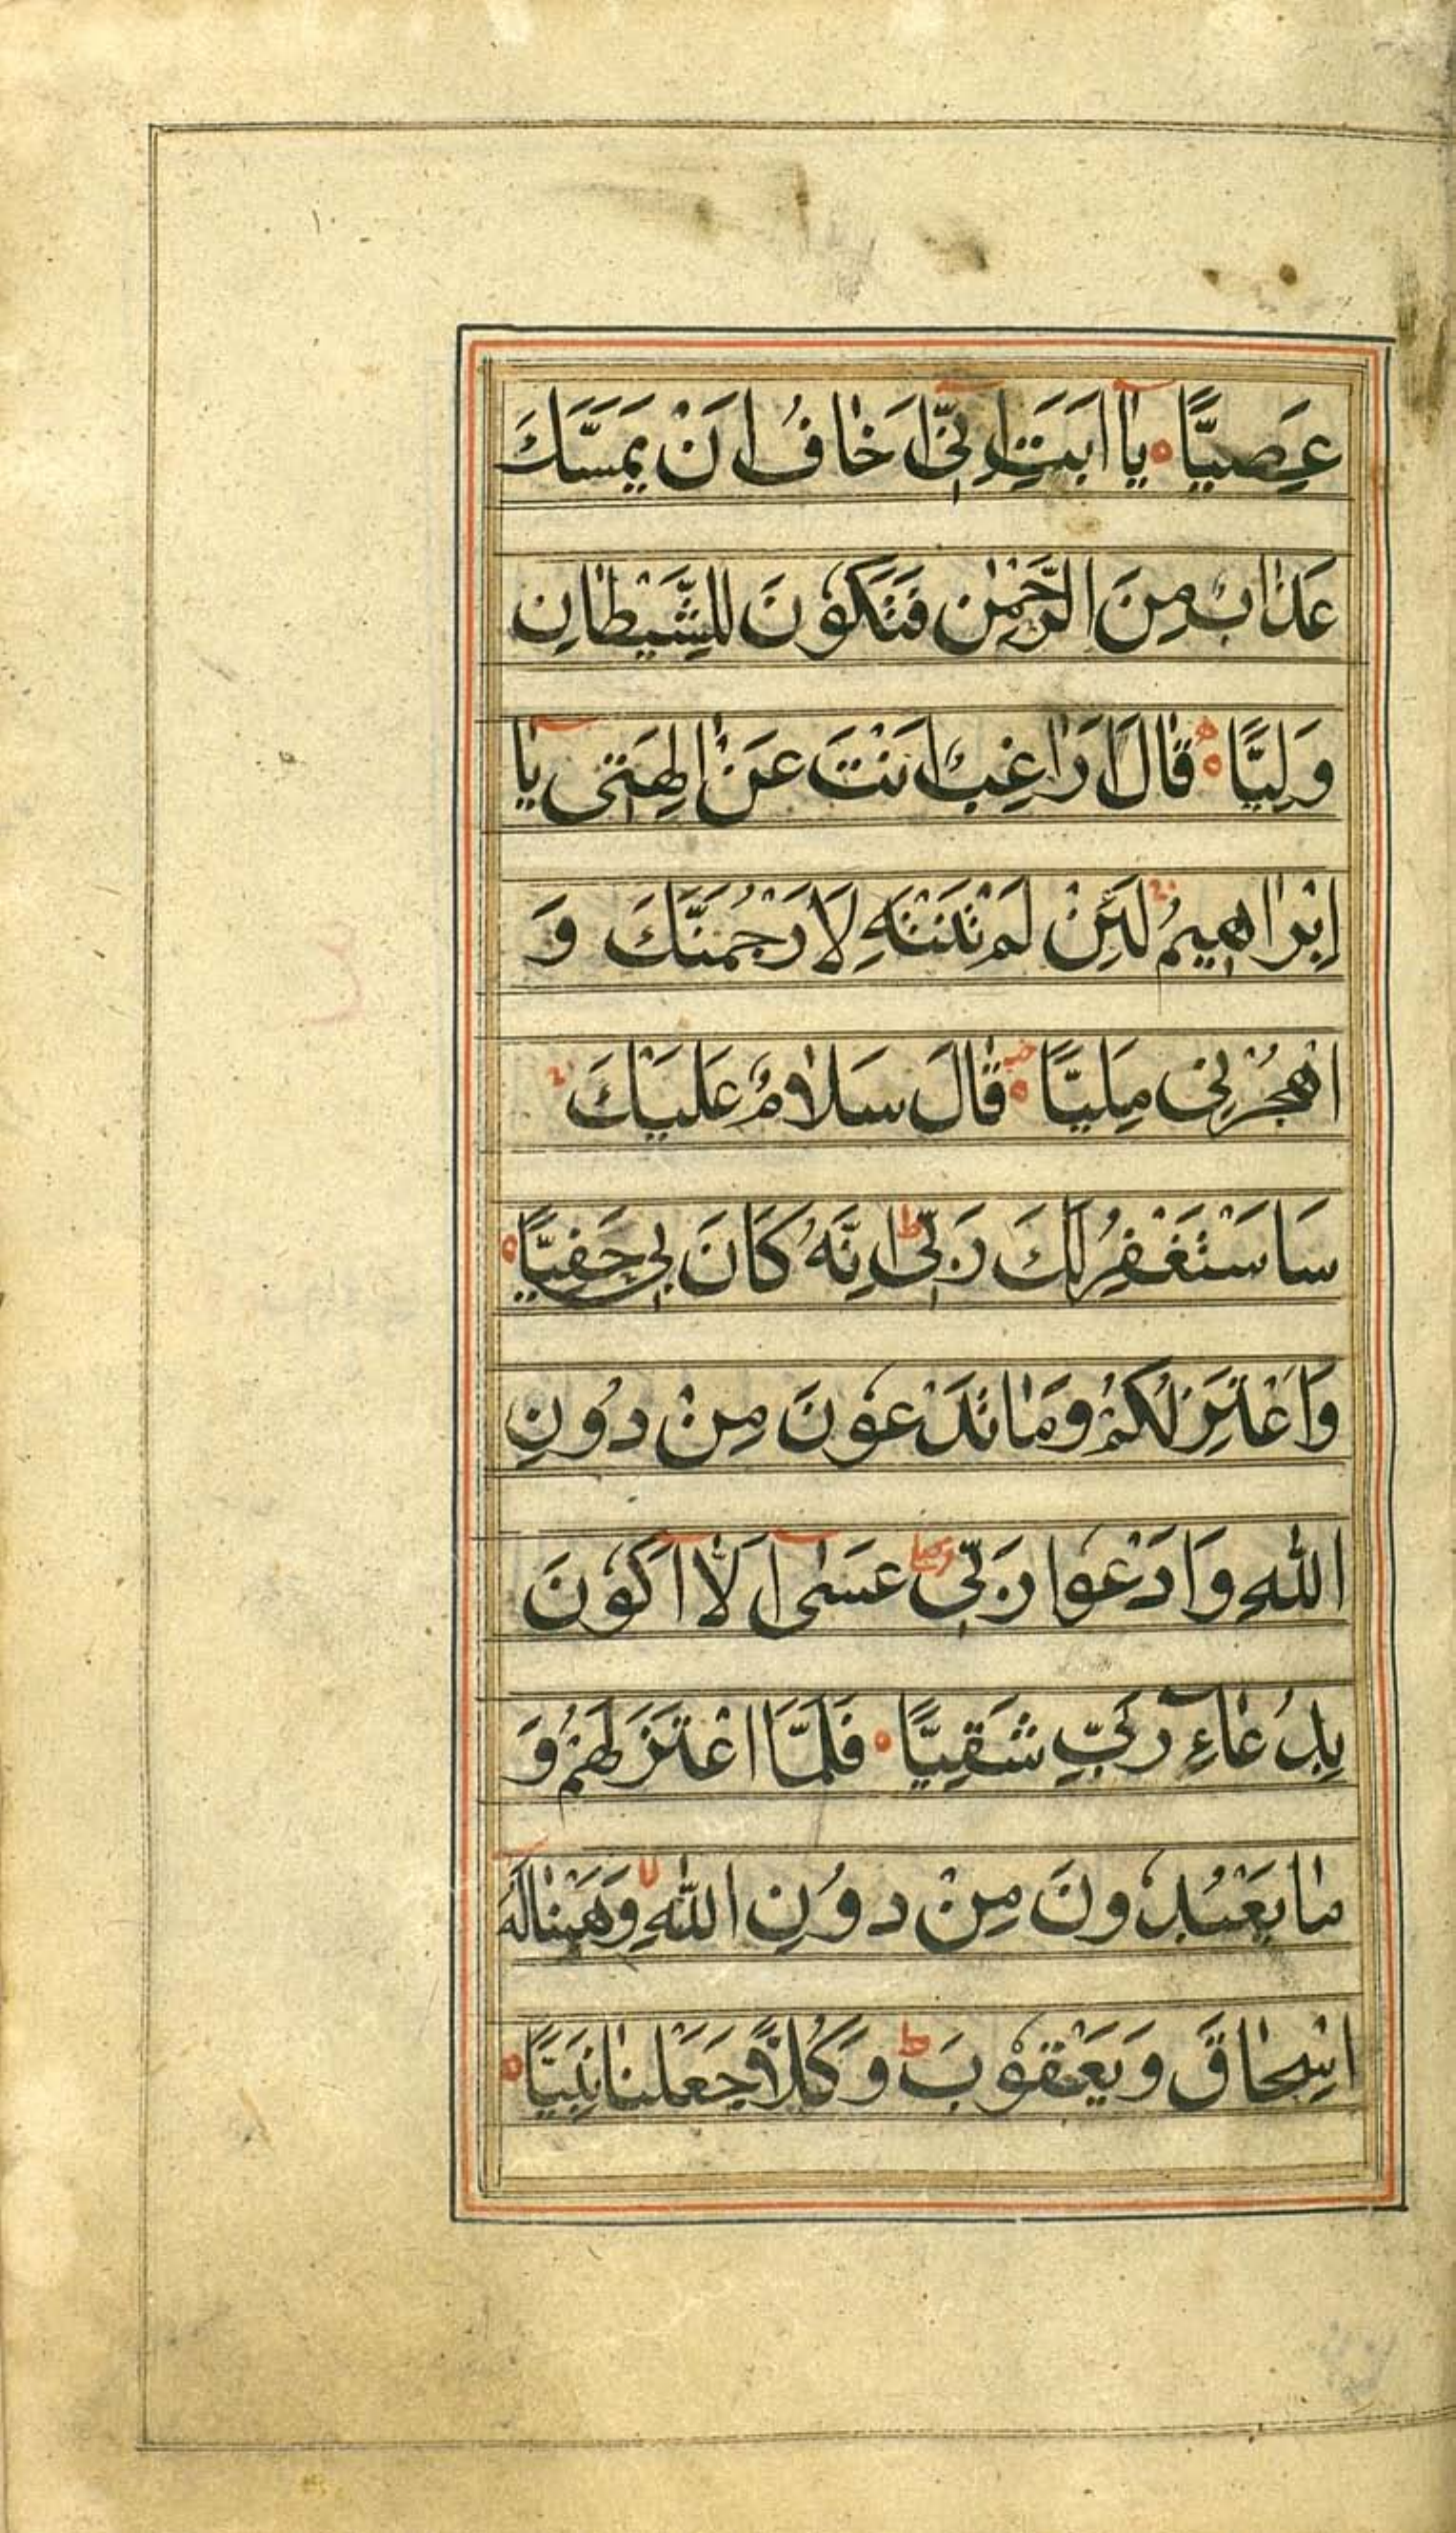 عَصِيًّا ۝ يٰٓا اَبَتِ اِنّٖٓى اَخٰافُ اَنْ يَمَسَّكَ
عَذٰابٌ مِنَ الرَّحْمٰنِ فَتَكُوْنَ لِلشَّيْطٰانِ
وَلِيًّا ۝ قٰالَ اَرٰاغِبٌ اَنْتَ عَنْ اٰلِهَتٖى يٰٓا
اِبْرٰاهٖيمُ لَئِنْ لَمْ تَنْتَهِ لَاَرْجُمَنَّكَ وَ
اهْجُرْنٖى مَلِيًّا ۝ قٰالَ سَلٰامٌ عَلَيْكَ
سَاَسْتَغْفِرُ لَكَ رَبّٖى ط اِنَّهُ كَانَ بٖى حَفِيًّا ۝
وَاَعْتَزِلُكُمْ وَمٰا تَدْعُوْنَ مِنْ دُوْنِ
اللّٰهِ وَاَدْعُوا رَبّٖى عَسٰىٓ اَلّٰٓا اَكُوْنَ
بِدُعٰٓاءِ رَبّٖى شَقِيًّا ۝ فَلَمَّا اعْتَزَلَهُمْ وَ
مٰا يَعْبُدُوْنَ مِنْ دُوْنِ اللّٰهِ لا وَهَبْنٰا لَهُٓ
اِسْحٰاقَ وَيَعْقُوْبَ ط وَكُلًّا جَعَلْنٰا نَبِيًّا ۝